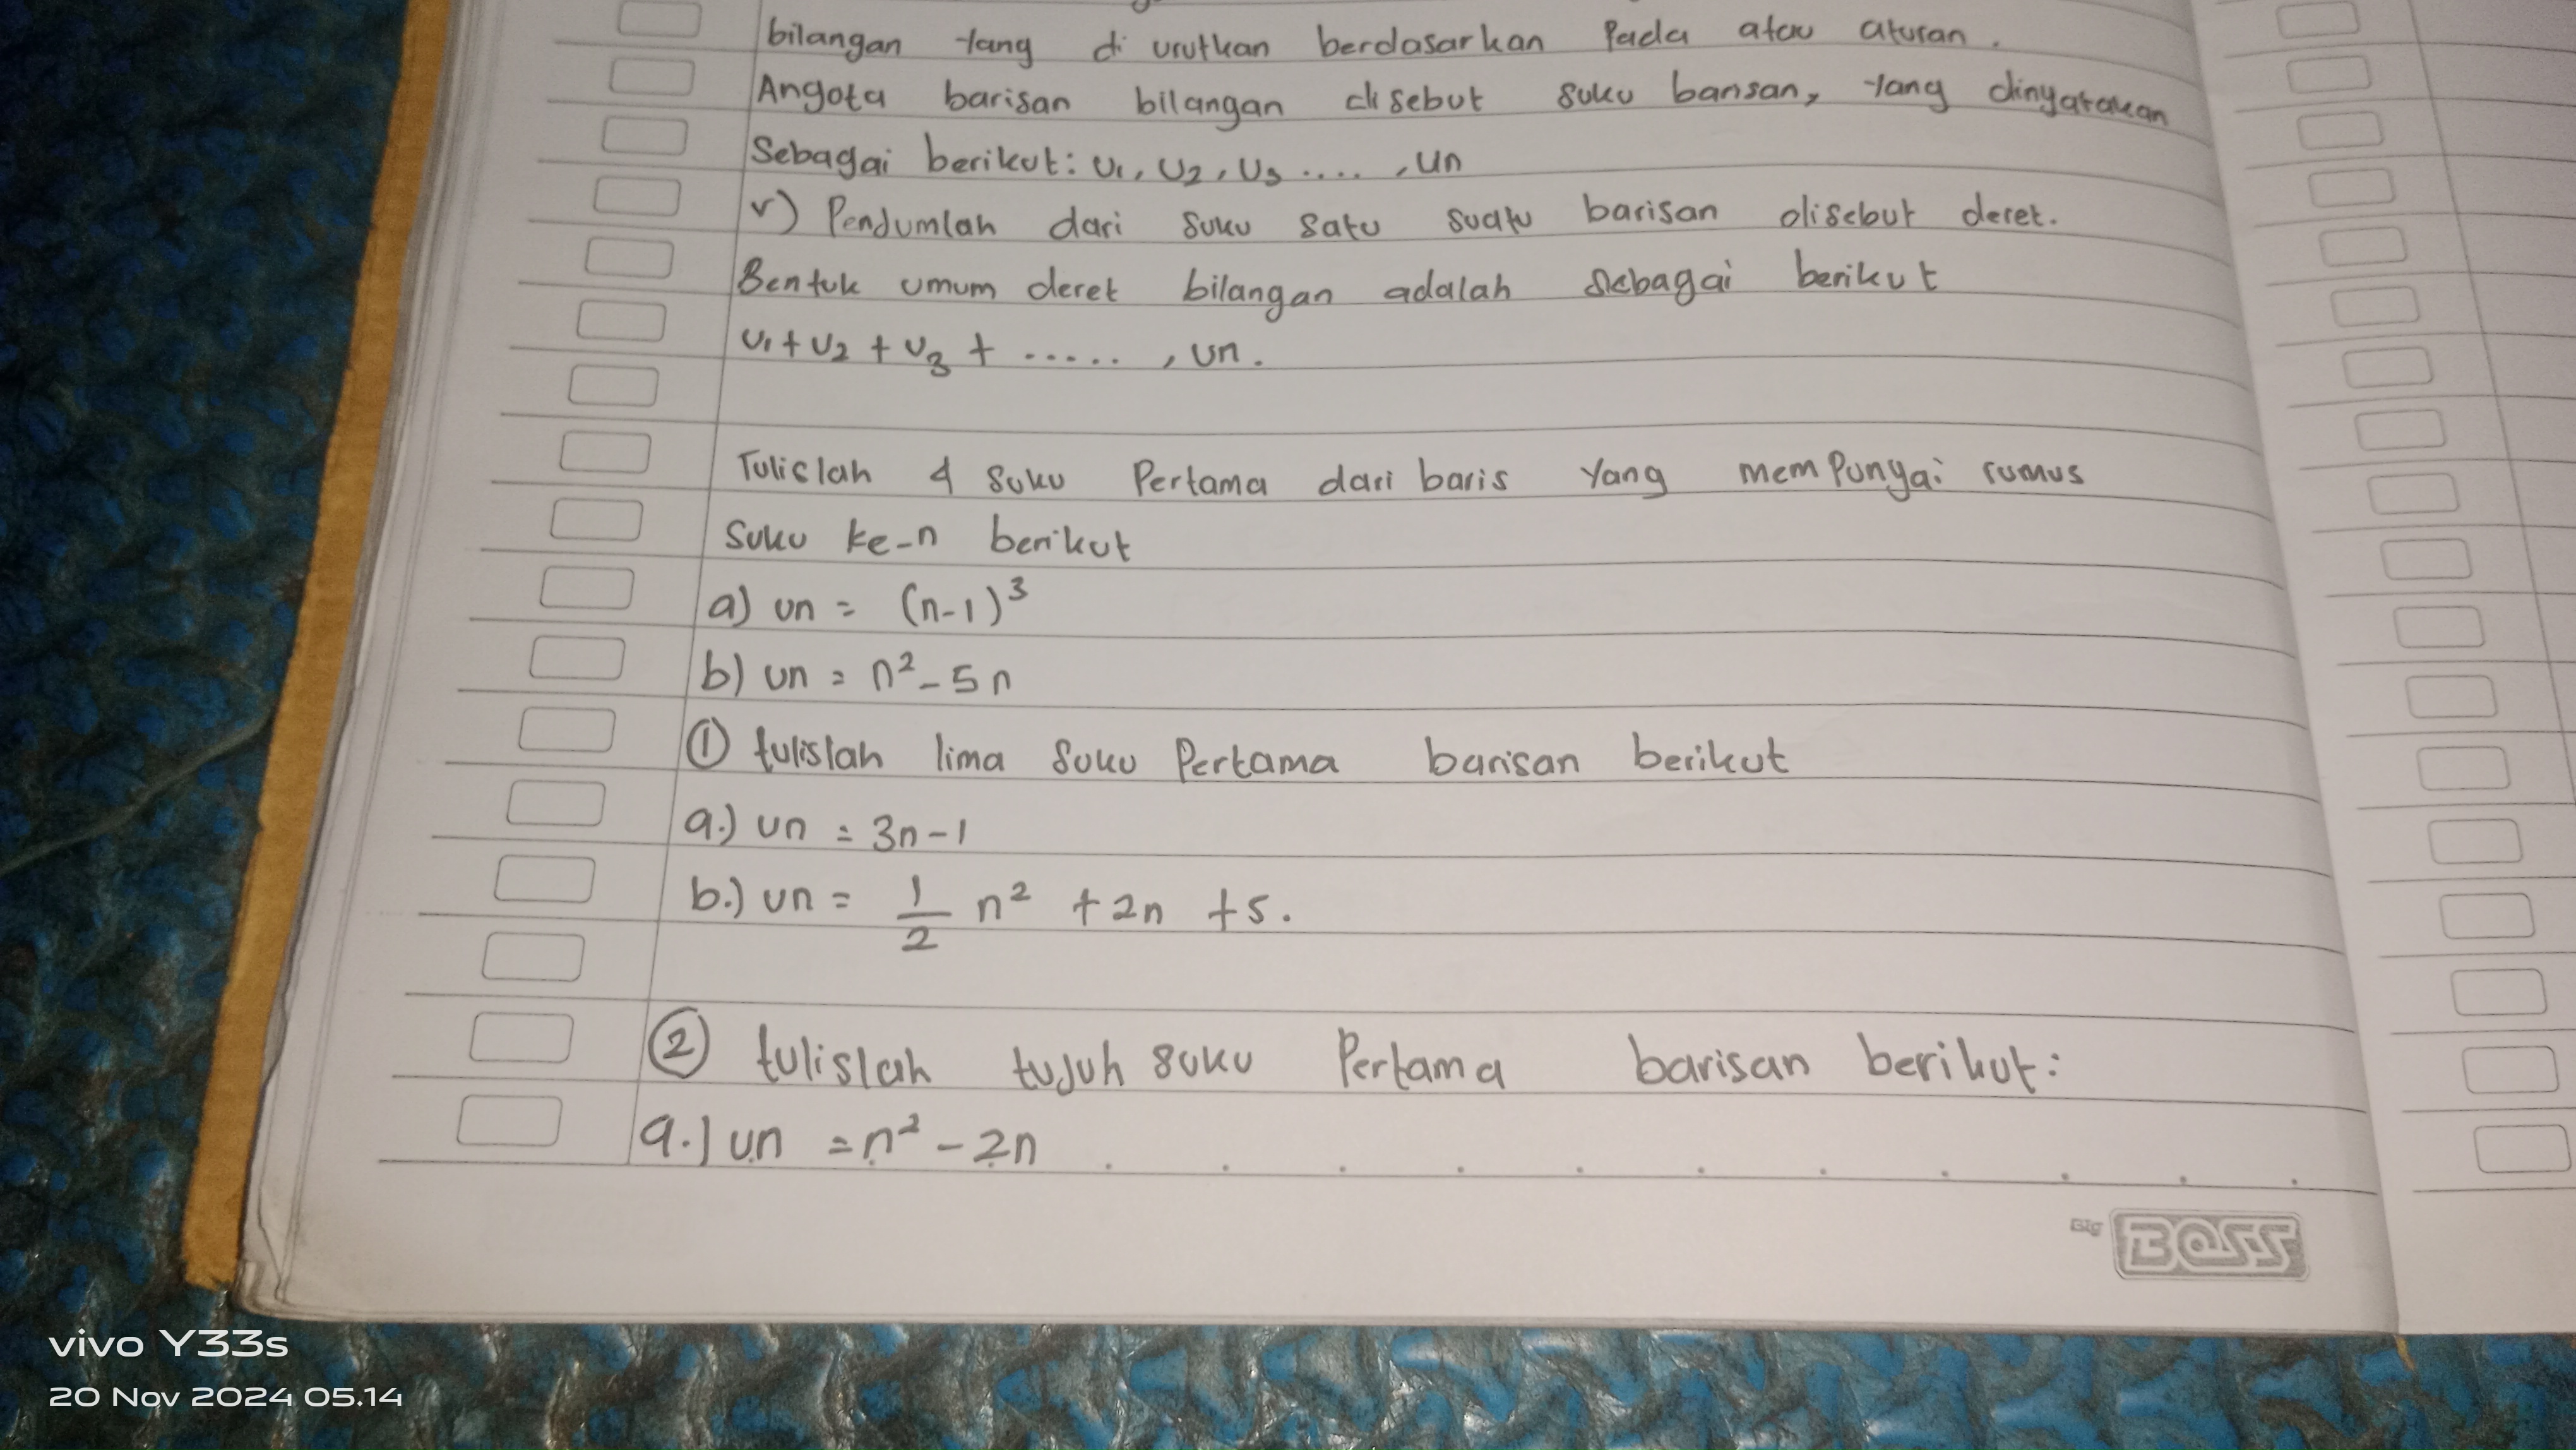 bilangan yang di urutkan berdasarkan Pada atau aturan.
Angota barisan bilangan disebut suku barisan, yang dinyatakan
Sebagai berikut: U1, U2, U3 ...., Un
v) Penjumlah dari suku satu suatu barisan disebut deret.
Bentuk umum deret bilangan adalah sebagai berikut
U1 + U2 + U3 + ....., Un.
Tulislah 4 Suku Pertama dari baris yang mempunyai rumus
Suku ke-n berikut
a) Un = (n-1)³
b) Un = n² - 5n
① tulislah lima suku Pertama barisan berikut
a.) Un = 3n-1
b.) Un = 1/2 n² + 2n + 5.
② tulislah tujuh suku Pertama barisan berikut:
a.) Un = n² - 2n
Big BOSS
vivo Y33s
20 Nov 2024 05.14